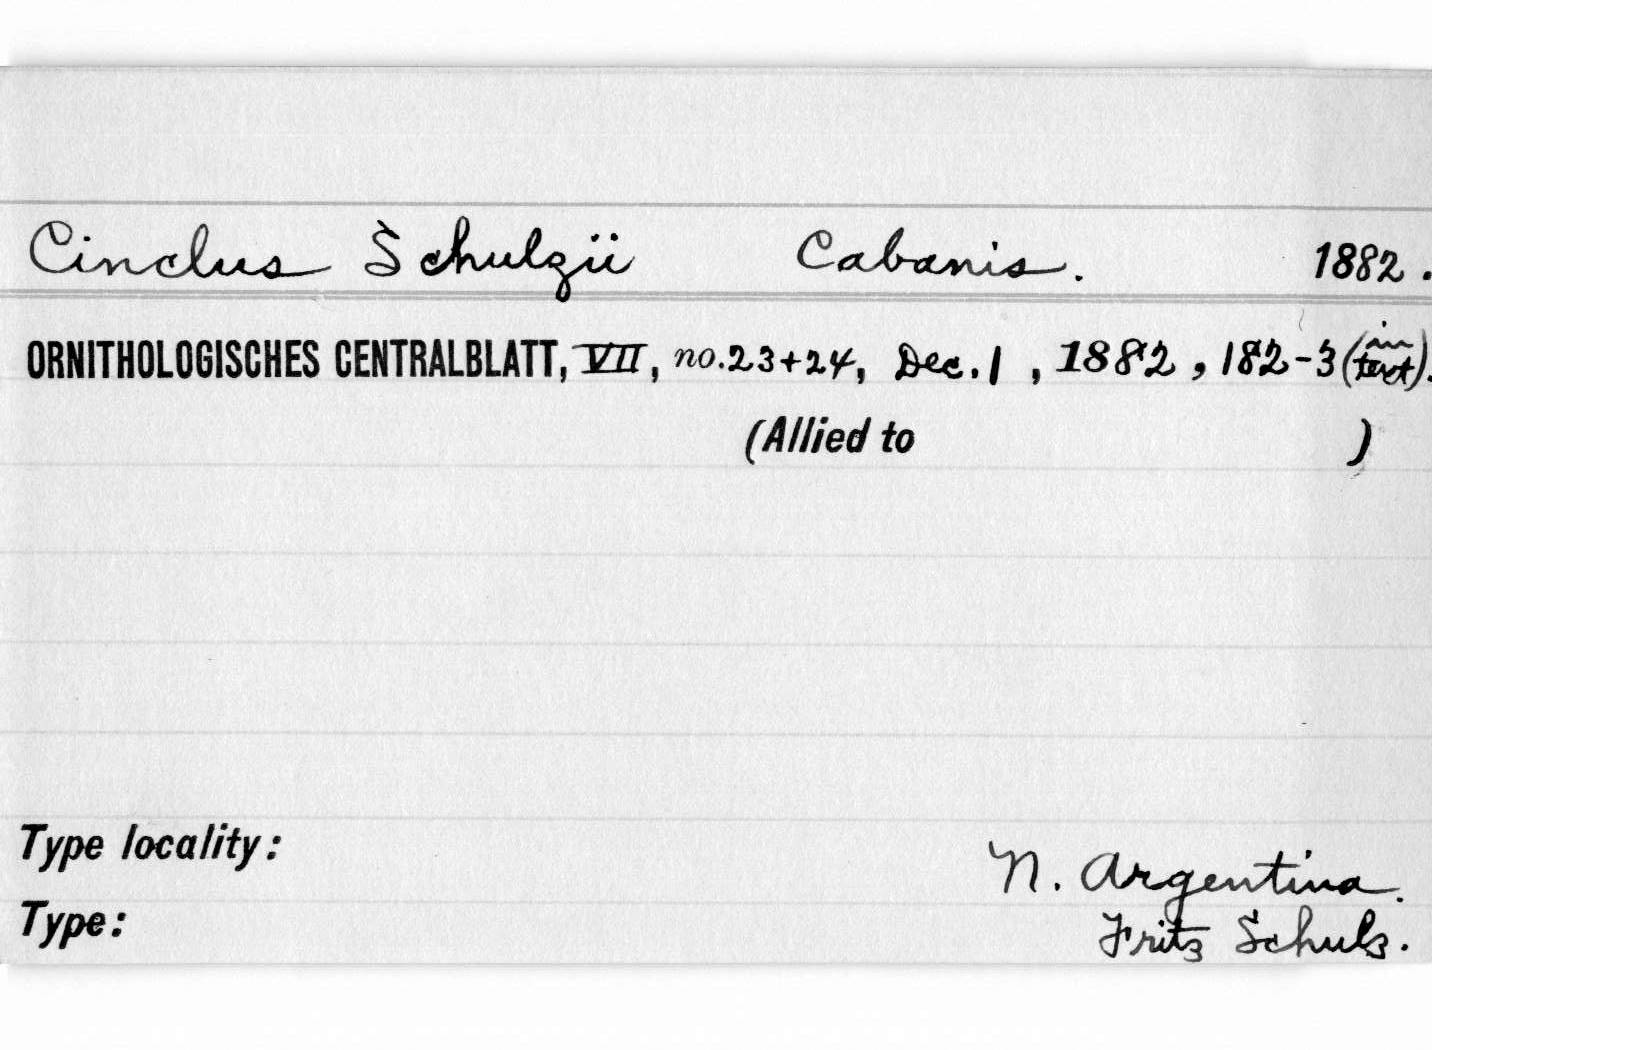 Cinclus Schulzii Cabanis. 1882.
ORNITHOLOGISCHES CENTRALBLATT, VII, no. 23+24, Dec. 1, 1882, 182-3 (in text).
(Allied to )
Type locality:
N. Argentina.
Type:
Fritz Schulz.